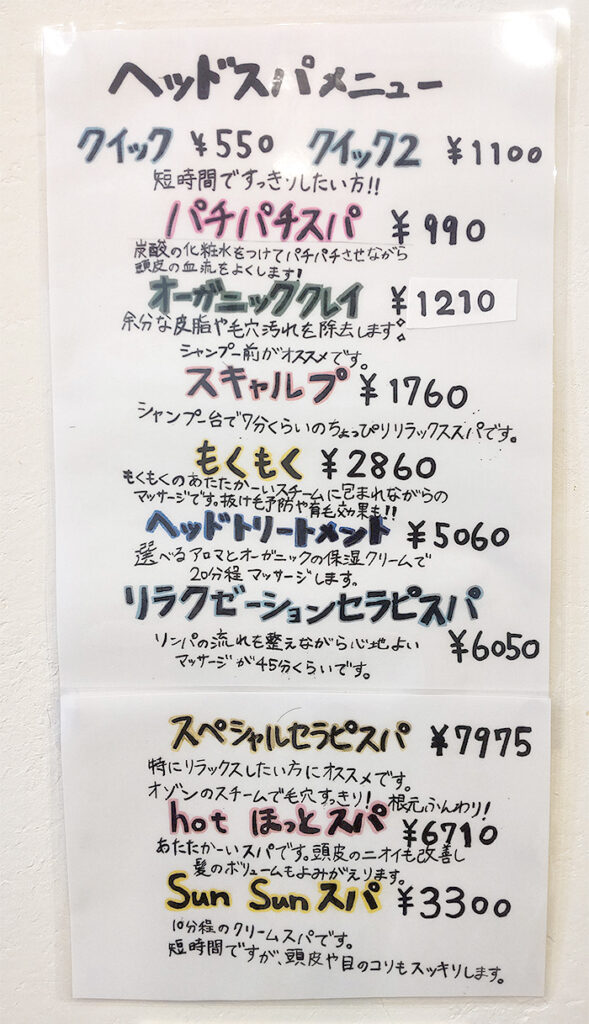 ヘッドスパメニュー
クイック ¥550 クイック2 ¥1100
短時間ですっきりしたい方!!
パチパチスパ ¥990
炭酸の化粧水をつけてパチパチさせながら
頭皮の血流をよくします!
オーガニッククレイ ¥1210
余分な皮脂や毛穴汚れを除去します
シャンプー前がオススメです。
スキャルプ ¥1760
シャンプー台で7分くらいのちょっぴりリラックススパです。
もくもく ¥2860
もくもくのあたたかーいスチームに包まれながらの
マッサージです。抜け毛予防や育毛効果も!!
ヘッドトリートメント ¥5060
選べるアロマとオーガニックの保湿クリームで
20分程マッサージします。
リラクゼーションセラピスパ
¥6050
リンパの流れも整えながら心地よい
マッサージが45分くらいです。
スペシャルセラピスパ ¥7975
特にリラックスしたい方にオススメです。
オゾンのスチームで毛穴すっきり! 根元ふんわり!
hot ほっとスパ ¥6710
あたたかーいスパです。頭皮のニオイも改善し
髪のボリュームもよみがえります。
Sun Sun スパ ¥3300
10分程のクリームスパです。
短時間ですが、頭皮や目のコリもスッキリします。